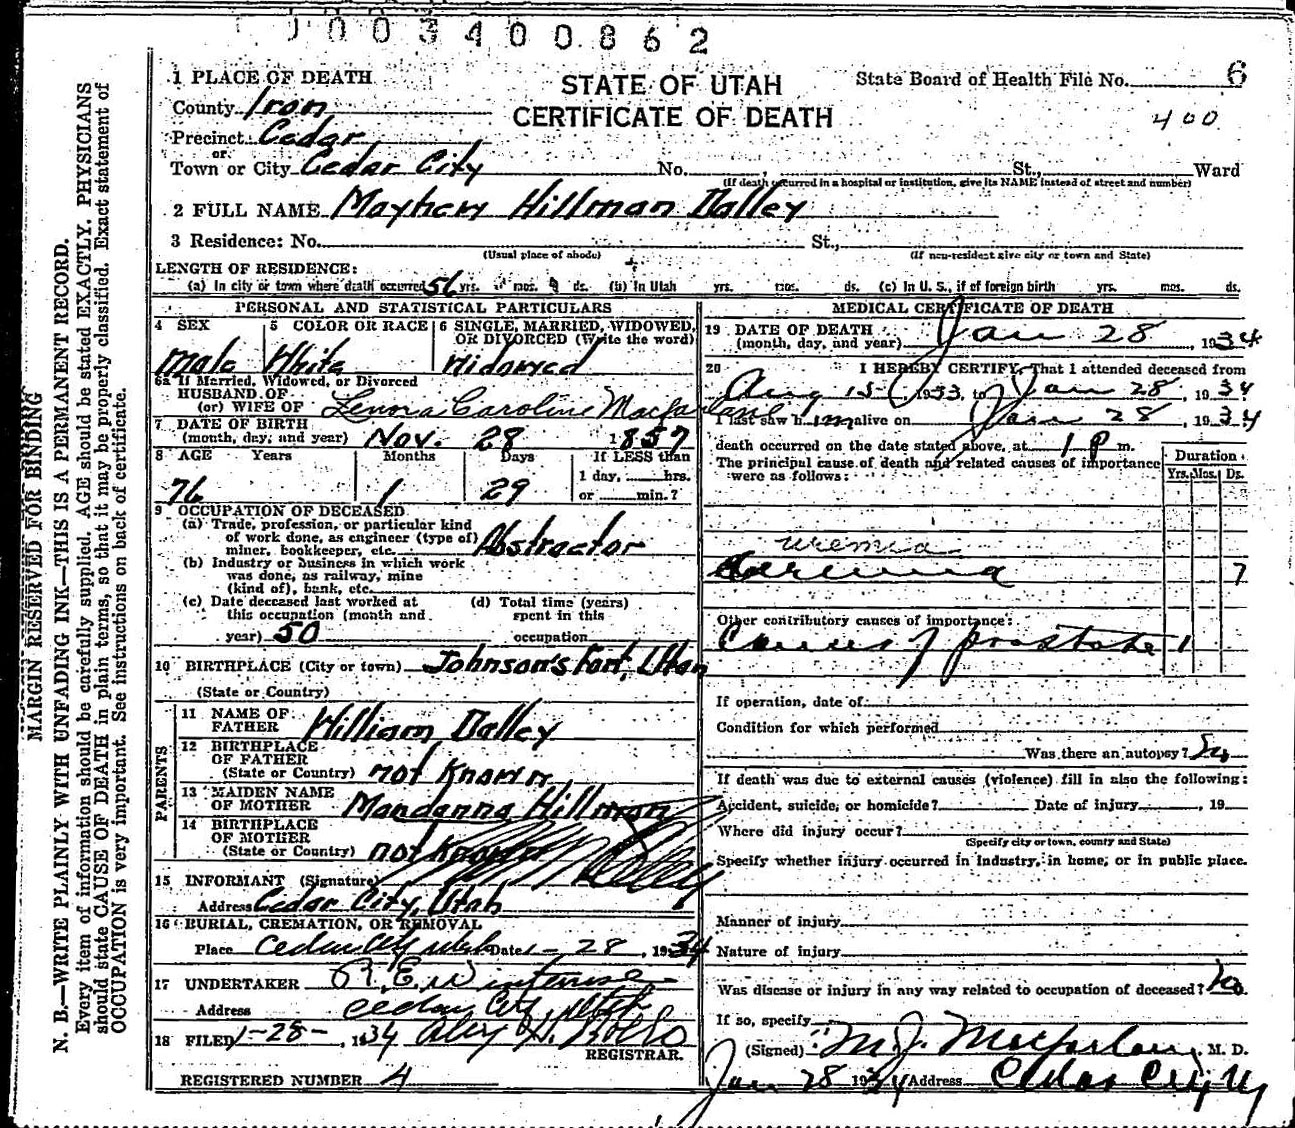 003400862
1 PLACE OF DEATH
STATE OF UTAH
CERTIFICATE OF DEATH
State Board of Health File No. 6
400
County Iron
Precinct Cedar
or
Town or City Cedar City No. St., Ward
(If death occurred in a hospital or institution, give its NAME instead of street and number)
2 FULL NAME Mayhew Hillman Dalley
3 Residence: No. St.,
(Usual place of abode) (If non-resident give city or town and State)
LENGTH OF RESIDENCE:
(a) In city or town where death occurred 56 yrs. mos. ds. (b) In Utah yrs. mos. ds. (c) In U. S., if of foreign birth yrs. mos. ds.
PERSONAL AND STATISTICAL PARTICULARS
4 SEX 5 COLOR OR RACE 6 SINGLE, MARRIED, WIDOWED, OR DIVORCED (Write the word)
Male White Widowed
6a If Married, Widowed, or Divorced
HUSBAND OF
(or) WIFE OF Lenora Caroline Macfarlane
7 DATE OF BIRTH
(month, day, and year) Nov. 28 1857
8 AGE Years Months Days If LESS than
1 day, hrs.
76 1 29 or min.?
9 OCCUPATION OF DECEASED
(a) Trade, profession, or particular kind
of work done, as engineer (type of)
miner, bookkeeper, etc. Abstractor
(b) Industry or business in which work
was done, as railway, mine
(kind of), bank, etc.
(c) Date deceased last worked at (d) Total time (years)
this occupation (month and spent in this
year) 50 occupation
10 BIRTHPLACE (City or town) Johnson's Fort, Utah
(State or Country)
PARENTS
11 NAME OF
FATHER William Dalley
12 BIRTHPLACE
OF FATHER
(State or Country) not Known
13 MAIDEN NAME
OF MOTHER Mandanna Hillman
14 BIRTHPLACE
OF MOTHER
(State or Country) not Known
15 INFORMANT (Signature) Dalley
Address Cedar City, Utah
16 BURIAL, CREMATION, OR REMOVAL
Place Cedar City Utah Date 1-28, 1934
17 UNDERTAKER R. E. Winterrose
Address Cedar City, Utah
18 FILED 1-28-, 1934
REGISTRAR.
REGISTERED NUMBER 4
MEDICAL CERTIFICATE OF DEATH
19 DATE OF DEATH
(month, day, and year) Jan 28, 1934
20 I HEREBY CERTIFY, That I attended deceased from
Aug 15-, 1933, to Jan 28, 1934
I last saw him alive on Jan 28, 1934
death occurred on the date stated above, at 1 P m.
The principal cause of death and related causes of importance
were as follows:
Duration
Yrs. Mos. Ds.
uremia
Uremia 7
Other contributory causes of importance:
Cancer of prostate 1
If operation, date of
Condition for which performed
Was there an autopsy? No
If death was due to external causes (violence) fill in also the following:
Accident, suicide, or homicide? Date of injury, 19
Where did injury occur?
(Specify city or town, county and State)
Specify whether injury occurred in industry, in home, or in public place.
Manner of injury
Nature of injury
Was disease or injury in any way related to occupation of deceased? No
If so, specify
(Signed) M. J. Macfarlane, M. D.
Jan 28 1934 Address Cedar City U
MARGIN RESERVED FOR BINDING
N. B.—WRITE PLAINLY WITH UNFADING INK—THIS IS A PERMANENT RECORD.
Every item of information should be carefully supplied. AGE should be stated EXACTLY. PHYSICIANS
should state CAUSE OF DEATH in plain terms, so that it may be properly classified. Exact statement of
OCCUPATION is very important. See instructions on back of certificate.